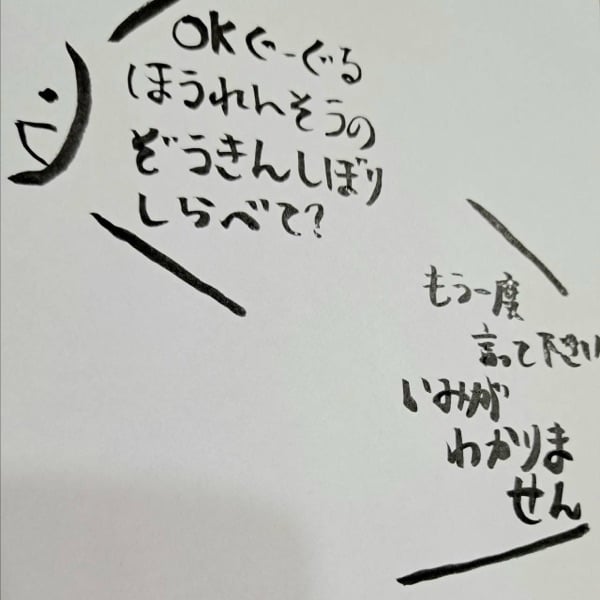 OKぐーぐる
ほうれんそうの
ぞうきんしぼり
しらべて?
もう一度
言って下さい
いみが
わかりま
せん